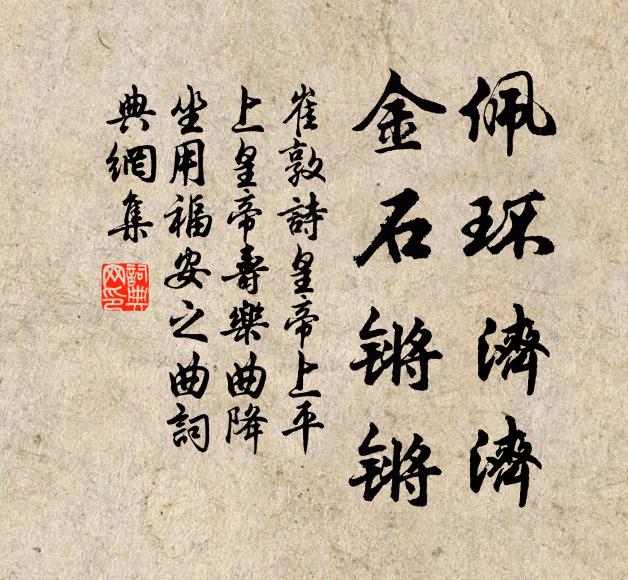 佩环濟濟
金石锵锵
崔敦詩皇帝上平
上皇帝壽樂曲降
坐用福安之曲詞
典網集
詞典網印